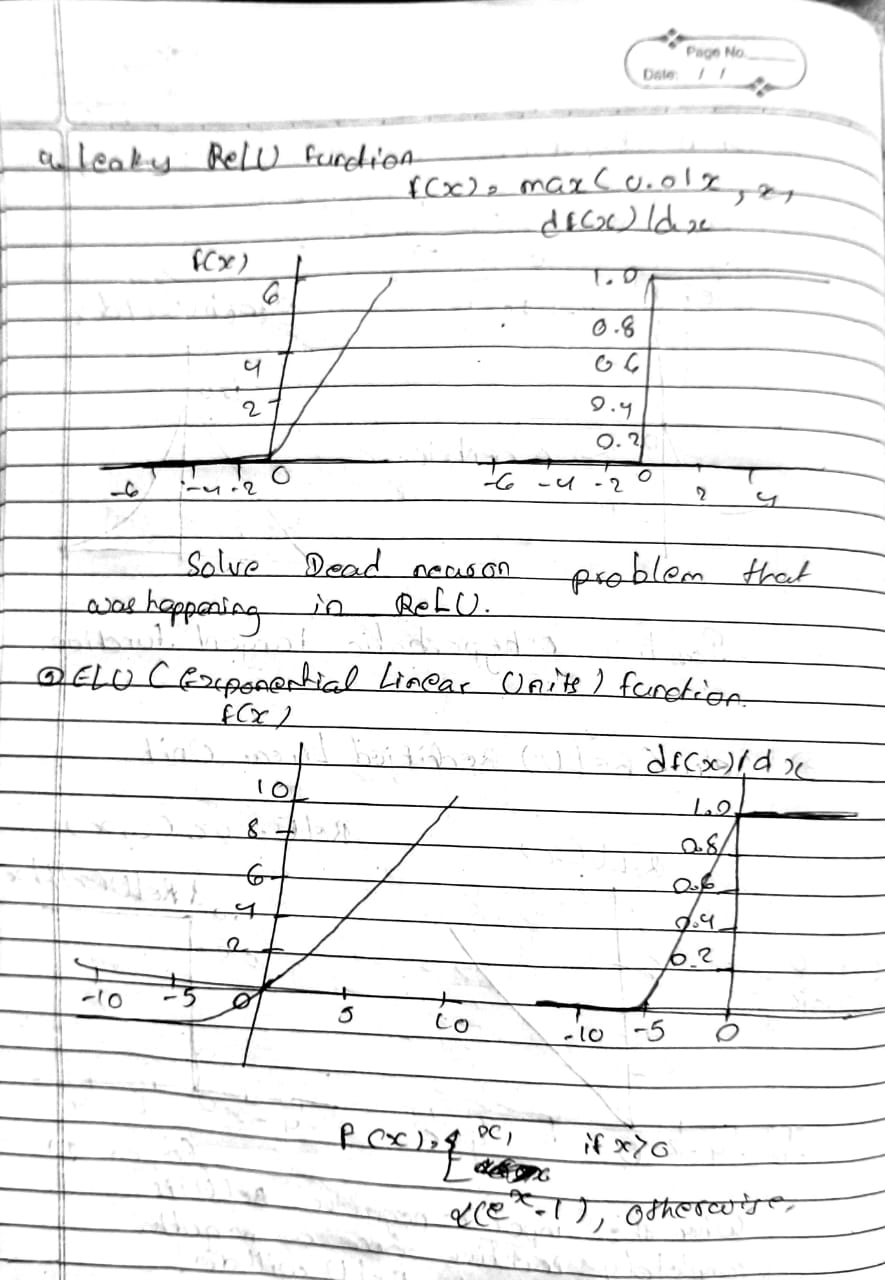 Page No.
Date: / /
a. leaky ReLU function
f(x) = max(0.01x, x,
df(x)/dx
f(x)
6
4
2
-6 -4 -2 0
1.0
0.8
0.6
0.4
0.2
-6 -4 -2 0 2 4
Solve Dead neuson problem that
was happening in ReLU.
ELU (Exponential Linear Units) function.
f(x)
10
8
6
4
2
-10 -5 0 5 10
df(x)/dx
1.0
0.8
0.6
0.4
0.2
-10 -5 0
f(x) = { x, if x>0
α(e^x-1), otherwise,